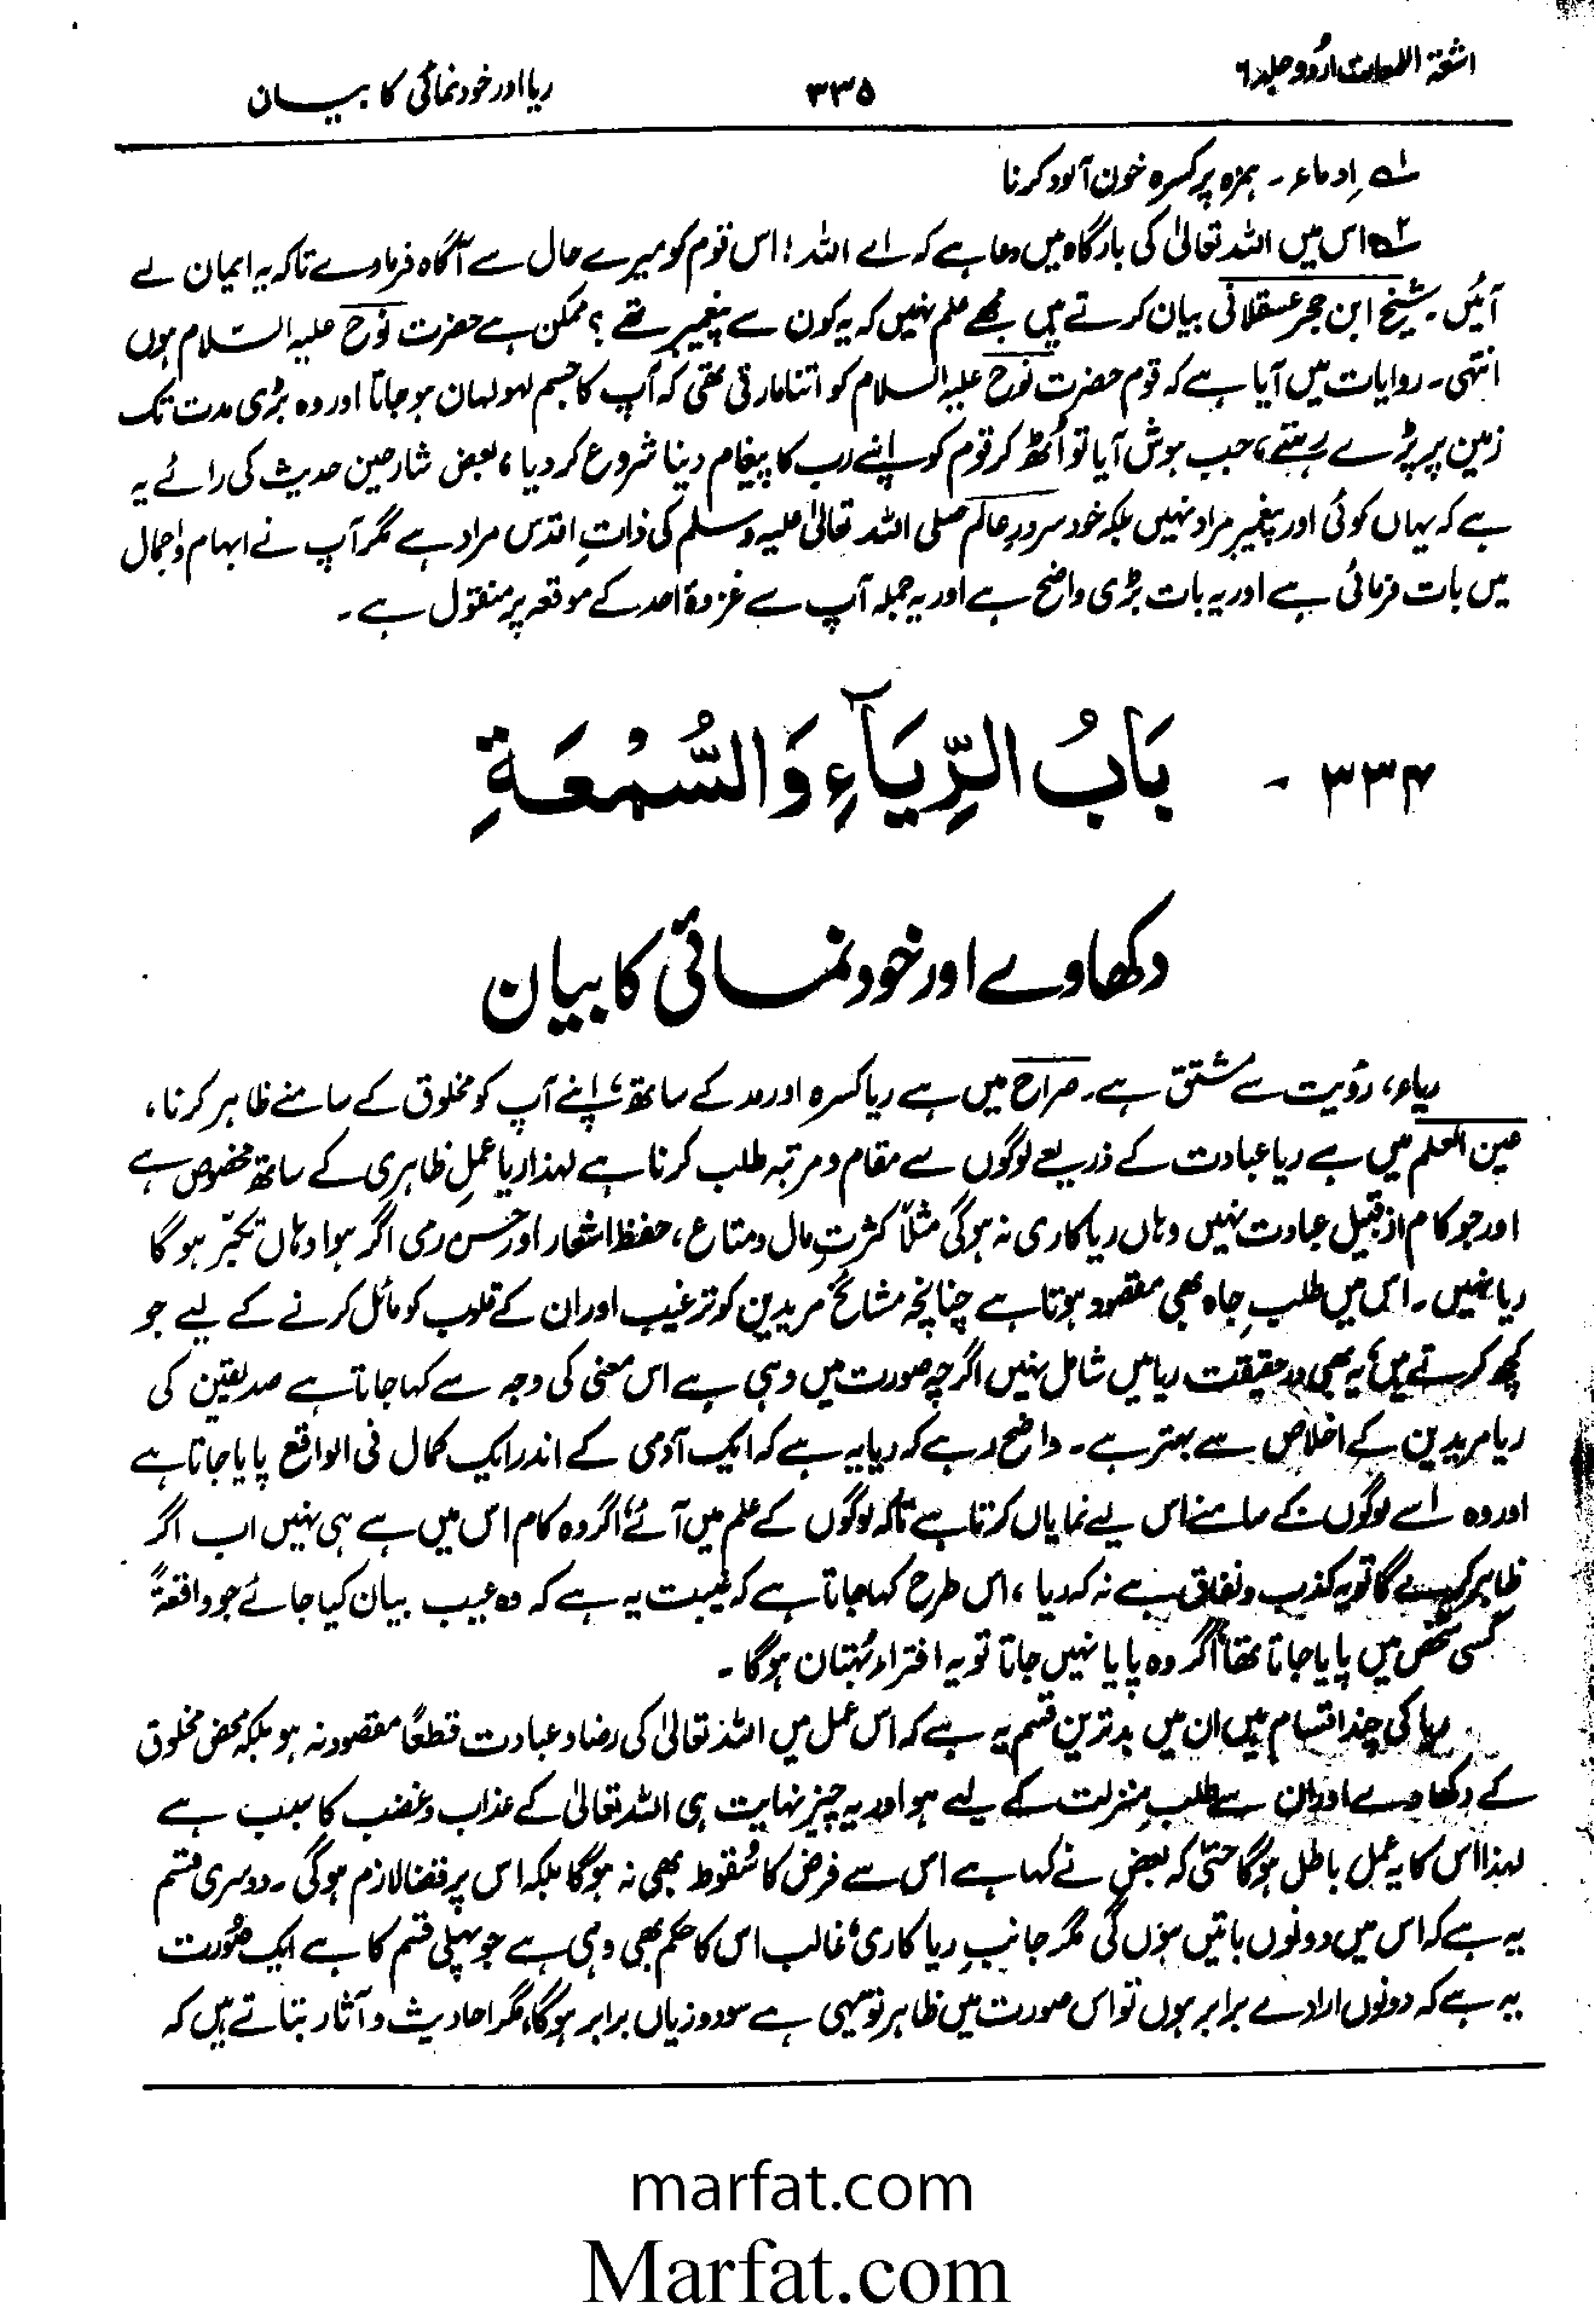 اشعۃ اللمعات اردو جلد ۶
۳۳۵
ریا اور خود نمائی کا بیان
۱؎ اِدماء۔ ہمزہ پر کسرہ خون آلود کرنا
۲؎ اس میں اللہ تعالیٰ کی بارگاہ میں دعا ہے کہ اے اللہ! اس قوم کو میرے حال سے آگاہ فرما دے تاکہ یہ ایمان لے
آئیں۔ شیخ ابن حجر عسقلانی بیان کرتے ہیں مجھے علم نہیں کہ یہ کون سے پیغمبر تھے؟ ممکن ہے حضرت نوح علیہ السّلام ہوں
انتہی۔ روایات میں آیا ہے کہ قوم حضرت نوح علیہ السلام کو اتنا مارتی تھی کہ آپ کا جسم لہولہان ہو جاتا اور وہ بڑی مدت تک
زمین پر پڑے رہتے، جب ہوش آیا تو اُٹھ کر قوم کو اپنے رب کا پیغام دینا شروع کر دیا، بعض شارحین حدیث کی رائے یہ
ہے کہ یہاں کوئی اور پیغمبر مراد نہیں بلکہ خود سرورِ عالم صلی اللہ تعالیٰ علیہ وسلم کی ذاتِ اقدس مراد ہے مگر آپ نے ابہام و اجمال
میں بات فرمائی ہے اور یہ بات بڑی واضح ہے اور یہ جملہ آپ سے غزوۂ احد کے موقعہ پر منقول ہے۔
۳۳۴ - بَابُ الرِّيَآءِ وَالسُّمْعَةِ
دکھاوے اور خود نمائی کا بیان
ریاء، رؤیت سے مشتق ہے۔ صراح میں ہے ریا کسرہ اور مد کے ساتھ، اپنے آپ کو مخلوق کے سامنے ظاہر کرنا،
عین العلم میں ہے ریا عبادت کے ذریعے لوگوں سے مقام و مرتبہ طلب کرنا ہے لہذا ریا عملِ ظاہری کے ساتھ مخصوص ہے
اور جو کام از قبیل عبادت نہیں وہاں ریا کاری نہ ہوگی مثلاً کثرتِ مال و متاع، حفظ اشعار اور حسن رمی اگر ہوا وہاں تکبّر ہو گا
ریا نہیں۔ اس میں طلبِ جاہ بھی مقصود ہوتا ہے چنانچہ مشائخ مریدین کو ترغیب اور ان کے قلوب کو مائل کرنے کے لیے جو
کچھ کرتے ہیں، یہ بھی در حقیقت ریا میں شامل نہیں اگرچہ صورت میں وہی ہے اس معنی کی وجہ سے کہا جاتا ہے صدیقین کی
ریا مریدین کے اخلاص سے بہتر ہے۔ واضح رہے کہ ریا یہ ہے کہ ایک آدمی کے اندر ایک کمال فی الواقع پایا جاتا ہے
اور وہ اسے لوگوں کے سامنے اس لیے نمایاں کرتا ہے تاکہ لوگوں کے علم میں آئے، اگر وہ کام اس میں ہے ہی نہیں اب اگر
ظاہر کرے گا تو یہ کذب و نفاق ہے نہ کہ ریا، اس طرح کہا جاتا ہے کہ غیبت یہ ہے کہ وہ عیب بیان کیا جائے جو واقعۃً
کسی شخص میں پایا جاتا تھا اگر وہ پایا نہیں جاتا تو یہ افتراء و بُہتان ہوگا۔
ریا کی چند اقسام ہیں ان میں بدترین قسم یہ ہے کہ اس عمل میں اللہ تعالیٰ کی رضا و عبادت قطعًا مقصود نہ ہو بلکہ محض مخلوق
کے دکھاوے اور ان سے طلبِ منزلت کے لیے ہو اور یہ چیز نہایت ہی اللہ تعالیٰ کے عذاب و غضب کا سبب ہے
لہذا اس کا یہ عمل باطل ہوگا حتیٰ کہ بعض نے کہا ہے اس سے فرض کا سُقوط بھی نہ ہوگا بلکہ اس پر قضا لازم ہوگی۔ دوسری قسم
یہ ہے کہ اس میں دونوں باتیں ہوں گی مگر جانبِ ریا کاری، غالب اس کا حکم بھی وہی ہے جو پہلی قسم کا ہے ایک صُورت
یہ ہے کہ دونوں ارادے برابر ہوں تو اس صورت میں ظاہر تو یہی ہے سود و زیاں برابر ہوگا، مگر احادیث و آثار بتاتے ہیں کہ
marfat.com
Marfat.com